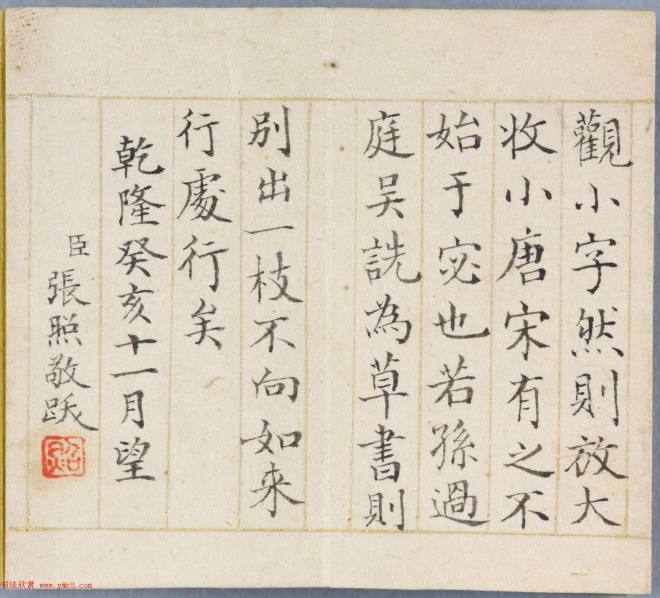 觀小字然則放大
收小唐宋有之不
始于宓也若孫過
庭吴說為草書則
別出一枝不向如来
行處行矣
乾隆癸亥十一月望
臣張照敬跋
照
书法欣赏 www.yac8.com